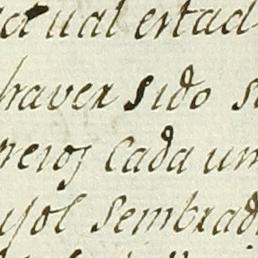 actual estad
haver sido s
neros Cada un
ysol Sembrad